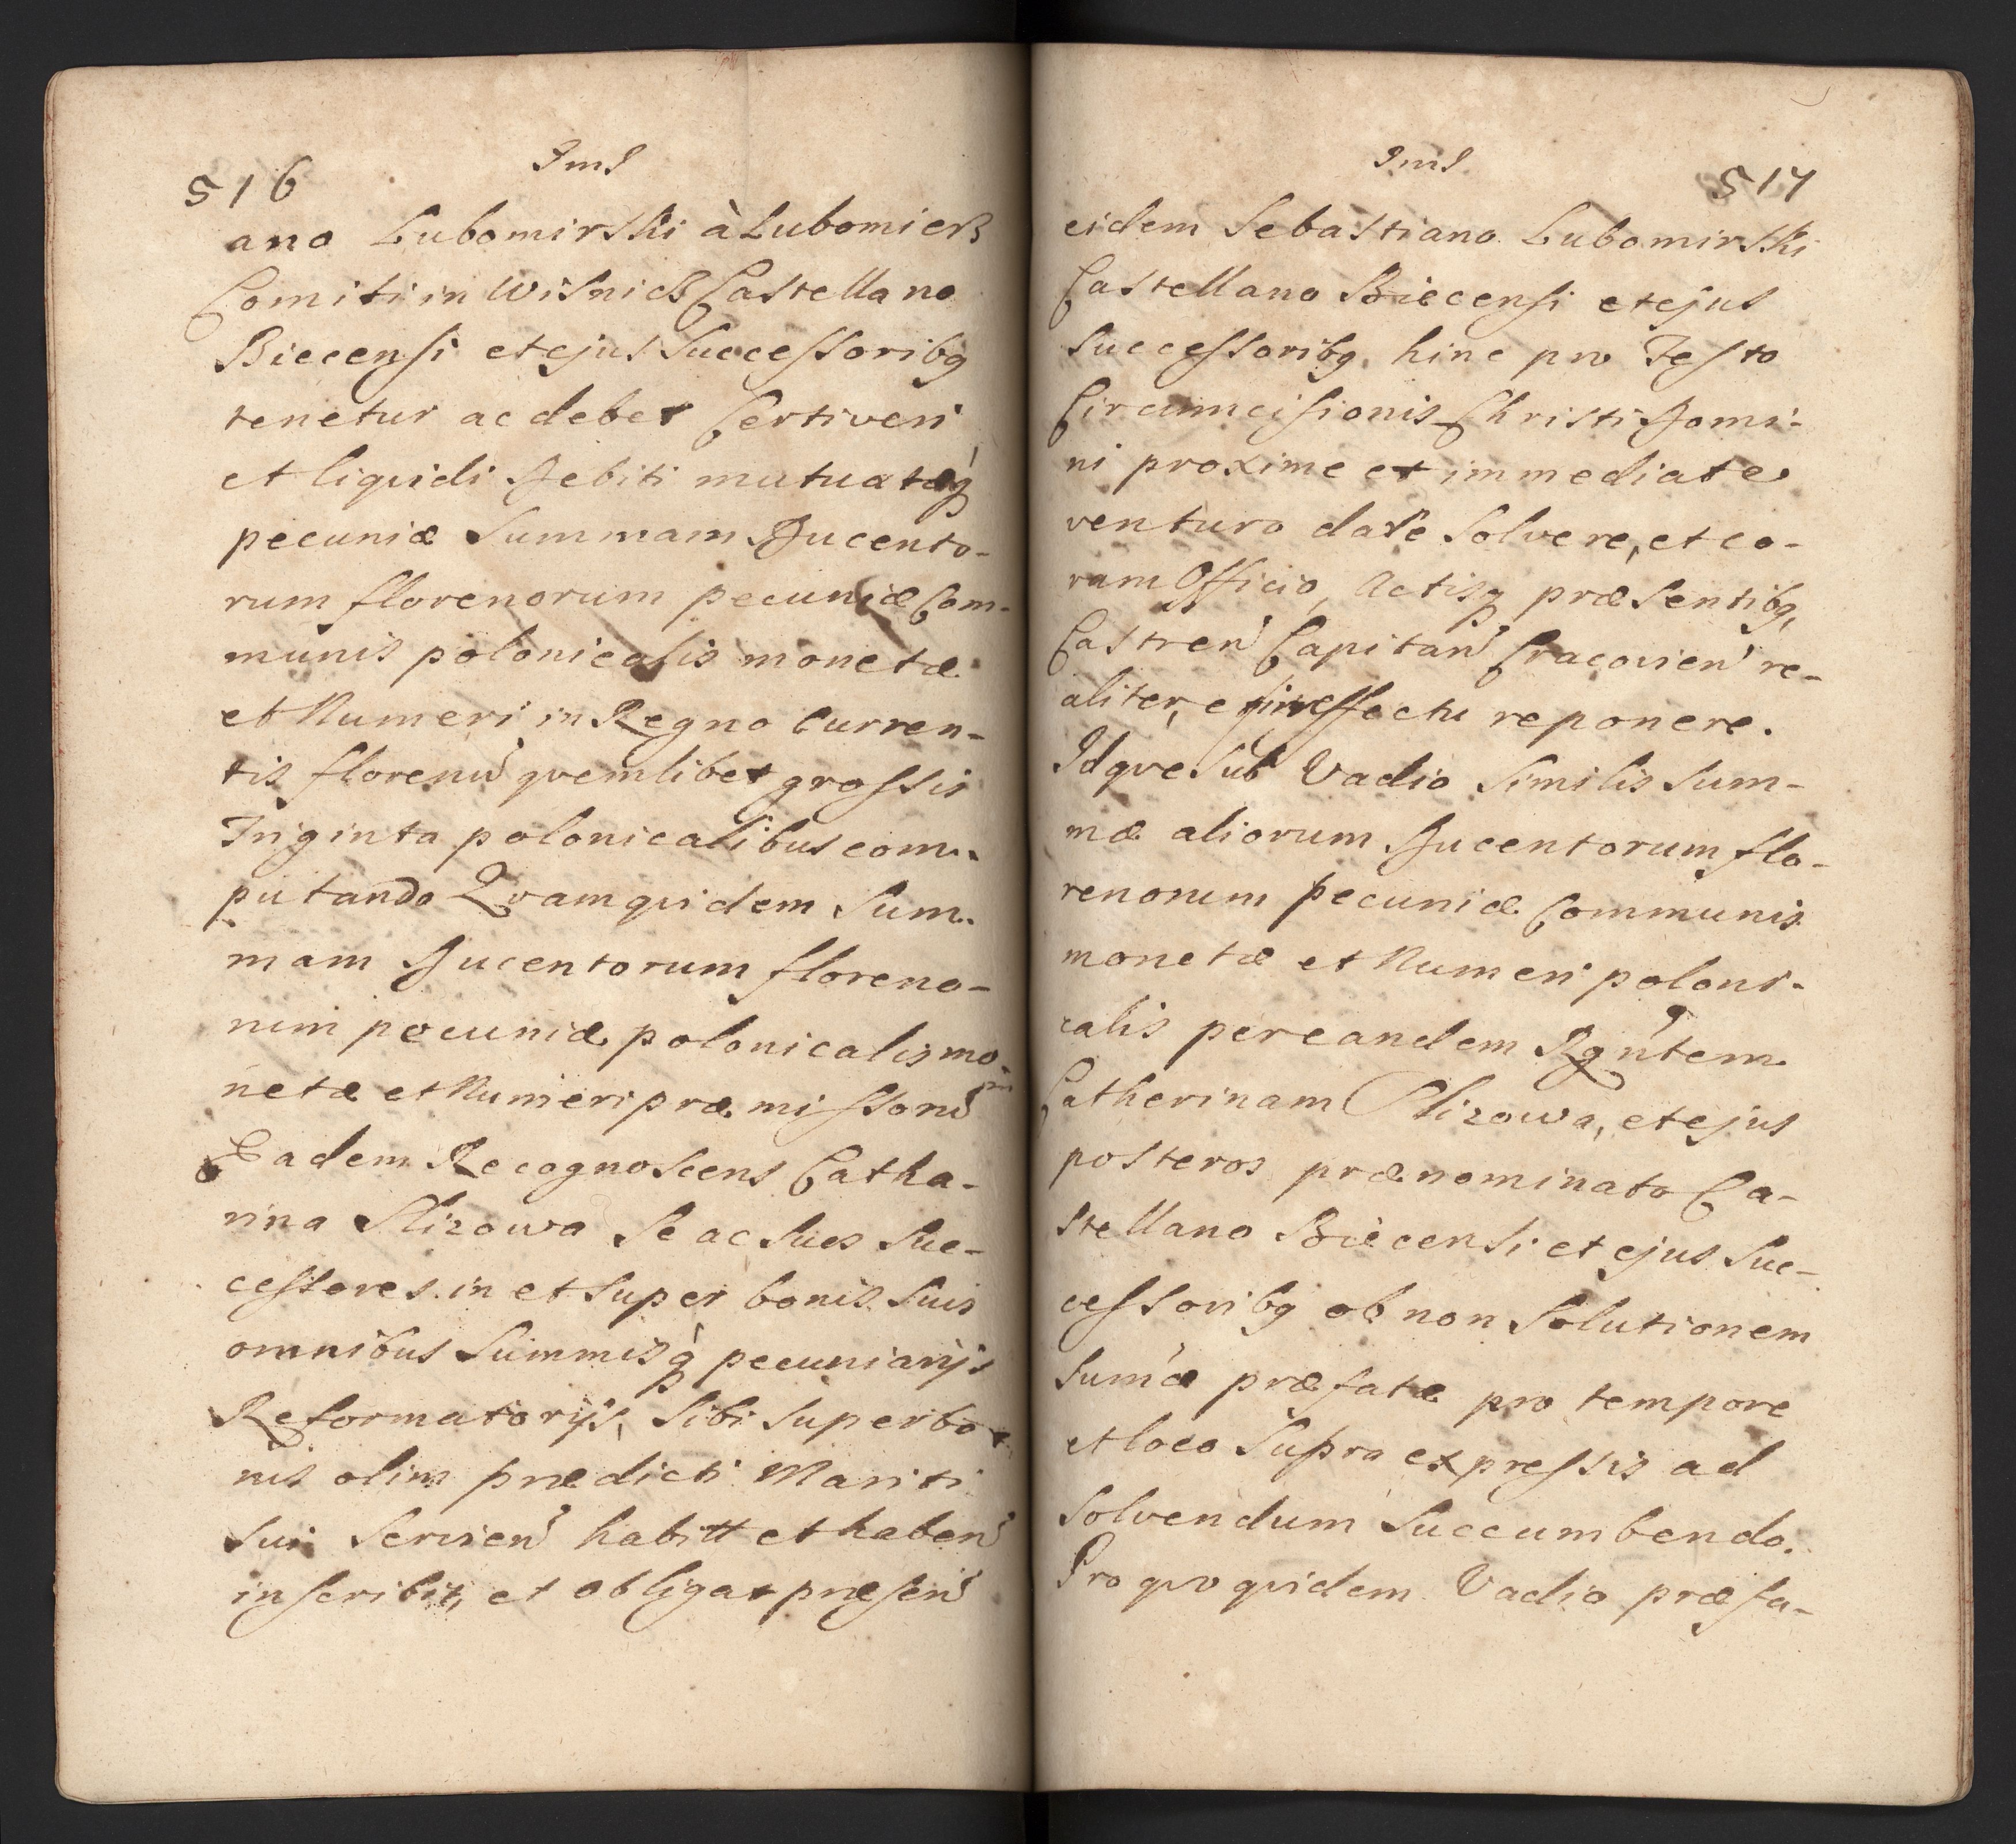 516
JmJ
ano Lubomirski à Lubomierz
Comiti in Wisnicz Castellano
Biecensi et ejus Successoribq
tenetur ac debet Certi veri
et liquidi Debiti mutuatæq́
pecuniæ Summam Ducento-
rum florenorum pecuniæ Com-
munis polonicalis monetæ
et Numeri in Regno Curren-
tis florenũ qvemlibet grossis
Triginta polonicalibus com-
putando Qvam qvidem Sum-
mam Ducentorum floreno-
rum pecuniæ polonicalis mo-
netæ et Numeri præmissorũ
Eadem Recognoscens Catha-
rina Slizowa Se ac Suos Suc-
cessores in et Super bonis Suis
omnibus Summisq́ pecuniarijs
Reformatorijs, Sibi Super bo-
nis olim prædicti Mariti
Sui Servien̛ habitt et haben̛
inscribit, et obligat præsen̛
JmJ
517
eidem Sebastiano Lubomirski
Castellano Biecensi et ejus
Successoribq, hinc pro Festo
Circumcisionis Christi Domi-
ni proxime et immediate
venturo dare Solvere, et co-
ram Officio, Actisq præsentibq,
Castren̛ Capitan̛ Cracovien̛ re-
aliter, et in effectu reponere.
Idqve Sub Vadio Similis Sum-
mæ aliorum Ducentorum flo-
renorum pecuniæ Communis
monetæ et Numeri poloni-
calis per eandem Rgn̛tem
Catherinam Slizowa, et ejus
posteros prænominato Ca-
stellano Biecensi et ejus Suc-
cessoribq ob non Solutionem
Sum̃æ præfatæ pro tempore
et loco Supra expressis ad
Solvendum Succumbendo.
Pro qvo qvidem Vadio præfa-